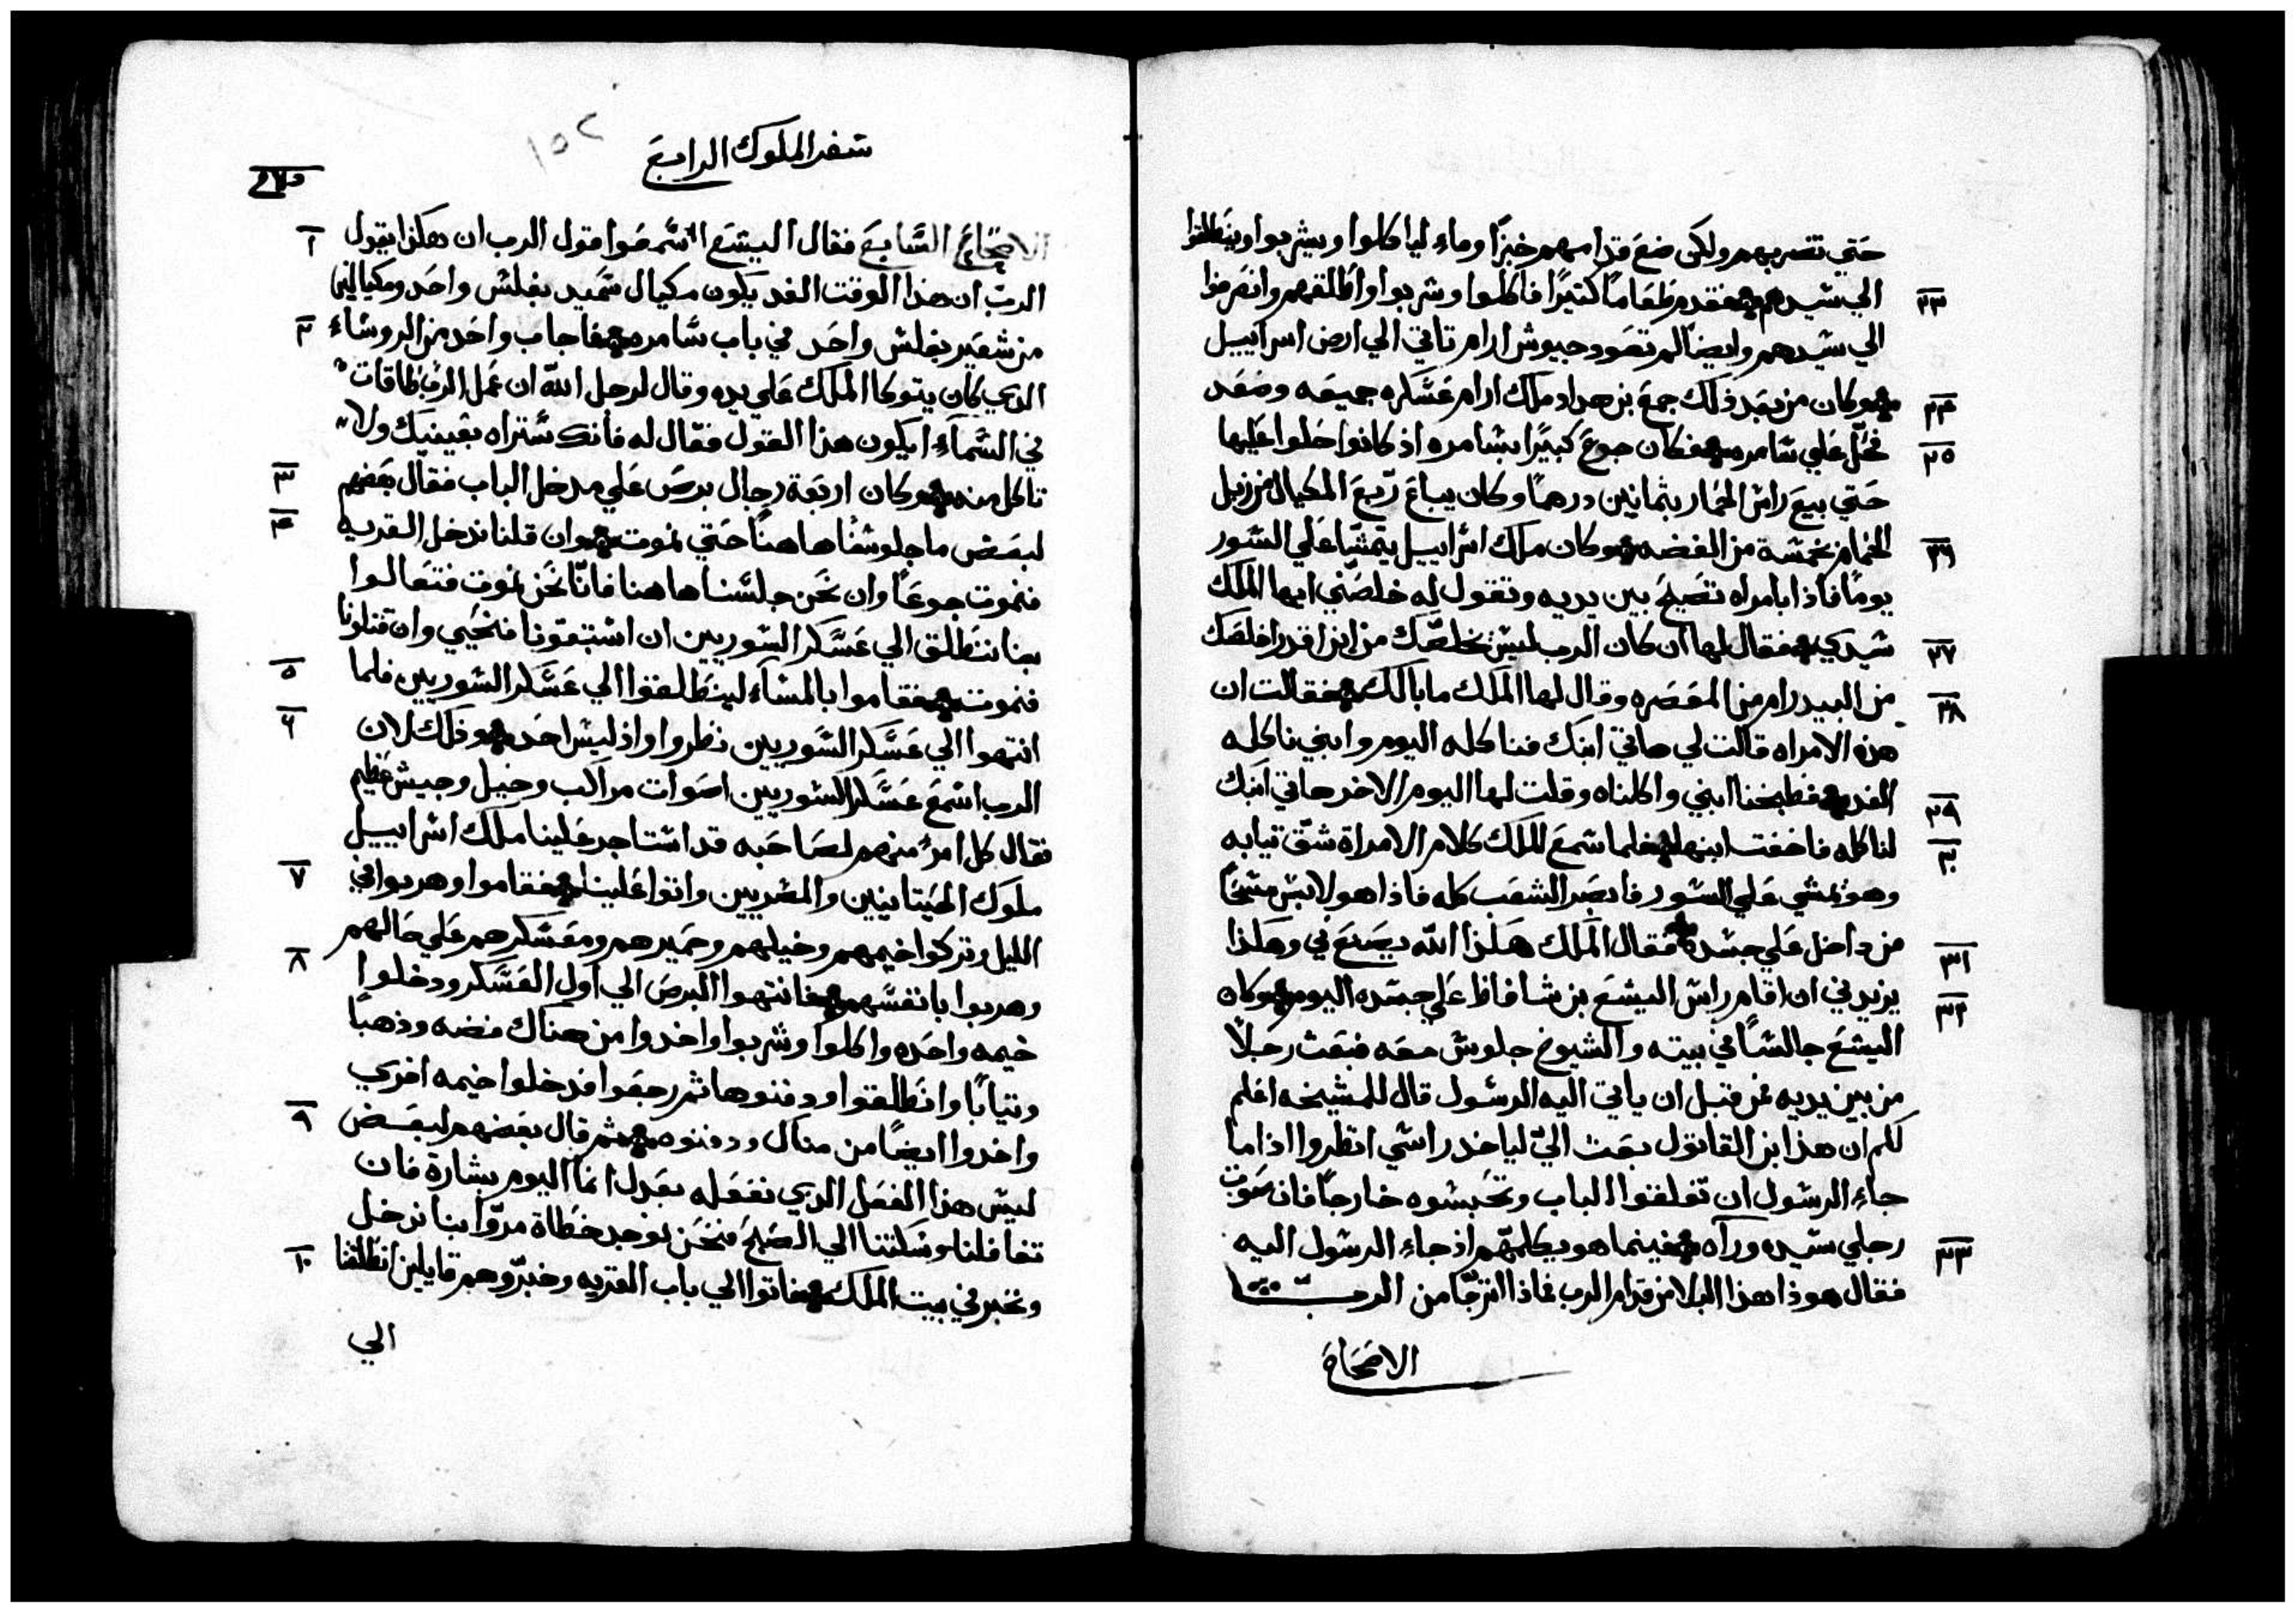 حتي تضربهم ولكن ضع قدامهم خبزًا وماء لياكلوا ويشربوا وينطلقوا
٢٣ الي سيدهم فقدم طعامًا كثيرًا فاكلوا وشربوا واطلقهم وانصرفوا
الي سيدهم وايضًا لم تعود جيوش ارام تاتي الي ارض اسراييل
٢٤ وكان من بعد ذلك جمع بن هداد ملك ارام عسكره جميعه وصعد
٢٥ فحل علي سامره فكان جوع كبيرًا بسامره اذ كانوا حلوا عليها
حتي بيع راس الحمار بثمانين درهمًا وكان يباع ربع المكيال من زبل
٢٦ الحمام بخمسة من الفضه وكان ملك اسراييل يتمشا علي السور
يومًا فاذا بامراه تصيح بين يديه وتقول له خلصني ايها الملك
٢٧ سيدي فقال لها ان كان الرب ليس يخلصك من اين اقدر اخلصك
٢٨ من البيدر ام من المعصره وقال لها الملك ما بالك فقالت ان
هذه الامراه قالت لي هاتي ابنك فناكله اليوم وابني ناكله
٢٩ الغد فطبخنا ابني واكلناه وقلت لها اليوم الاخر هاتي ابنك
٣٠ لناكله فاخفت ابنها فلما سمع الملك كلام الامراة شق تيابه
وهو يمشي علي السور فابصر الشعب كله فاذا هو لابس مسحًا
٣١ من داخل علي جسده فقال الملك هكذا الله يصنع بي وهكذا
٣٢ يزيدني ان اقام راس اليشع بن شافاظ علي جسده اليوم وكان
اليشع جالسًا في بيته والشيوخ جلوس معه فبعث رجلًا
من بين يديه من قبل ان ياتي اليه الرسول قال للمشيخه اعلم
لكم ان هذا ابن القاتول بعث الي لياخد راسي انظروا اذا ما
جاء الرسول ان تغلقوا الباب وتحبسوه خارجًا فان صوت
٣٣ رجلي سيده ورآه فبينما هو يكلمهم اذ جاء الرسول اليه
فقال هوذا هذا البلا من قدام الرب فماذا اترجا من الرب
الاصحاح
سفر الملوك الرابع
١٥٢
١ الاصحاح السابع فقال اليشع اسمعوا قول الرب ان هكذا يقول
الرب ان هذا الوقت الغد يكون مكيال سميد بفلس واحد ومكيالين
٢ من شعير بفلس واحد في باب سامره فاجاب واحد من الروساء
الدي كان يتوكا الملك علي يده وقال لرجل الله ان عمل الرب طاقات
في السماء ايكون هذا القول فقال له فانك ستراه بعينيك ولا
٣ تاكل منه وكان اربعة رجال برص علي مدخل الباب فقال بعضهم
٤ لبعض ما جلوسنا هاهنا حتي نموت وان قلنا ندخل القريه
فنموت جوعًا وان نحن جلسنا هاهنا فانا نحن نموت فتعالوا
بنا ننطلق الي عسكر السوريين ان استبقونا فنحيي وان قتلونا
٥ فنموت فقاموا بالمساء لينطلقوا الي عسكر السوريين فلما
٦ انتهوا الي عسكر السوريين نظروا واذ ليس احد وذلك لان
الرب اسمع عسكر السوريين اصوات مراكب وخيل وجيش عظيم
فقال كل امرء منهم لصاحبه قد استاجر علينا ملك اسراييل
٧ ملوك الحيتانيين والمصريين واتوا علينا فقاموا وهربوا في
الليل وتركوا خيمهم وخيلهم وحميرهم ومعسكرهم علي حالهم
٨ وهربوا بانفسهم فانتهوا البرص الي اول العسكر ودخلوا
خيمه واحده واكلوا وشربوا واخدوا من هناك فضه وذهبًا
وتيابًا وانطلقوا ودفنوها ثم رجعوا فدخلوا خيمه اخري
٩ واخدوا ايضًا من هناك ودفنوه ثم قال بعضهم لبعض
ليس هذا الفعل الدي نفعله بعدل انما اليوم بشارة فان
تغافلنا وسكتنا الي الصبح فنحن نوجد خطاة مروا بنا ندخل
١٠ ونخبر في بيت الملك فاتوا الي باب القريه وخبروهم قايلين انطلقنا
الي